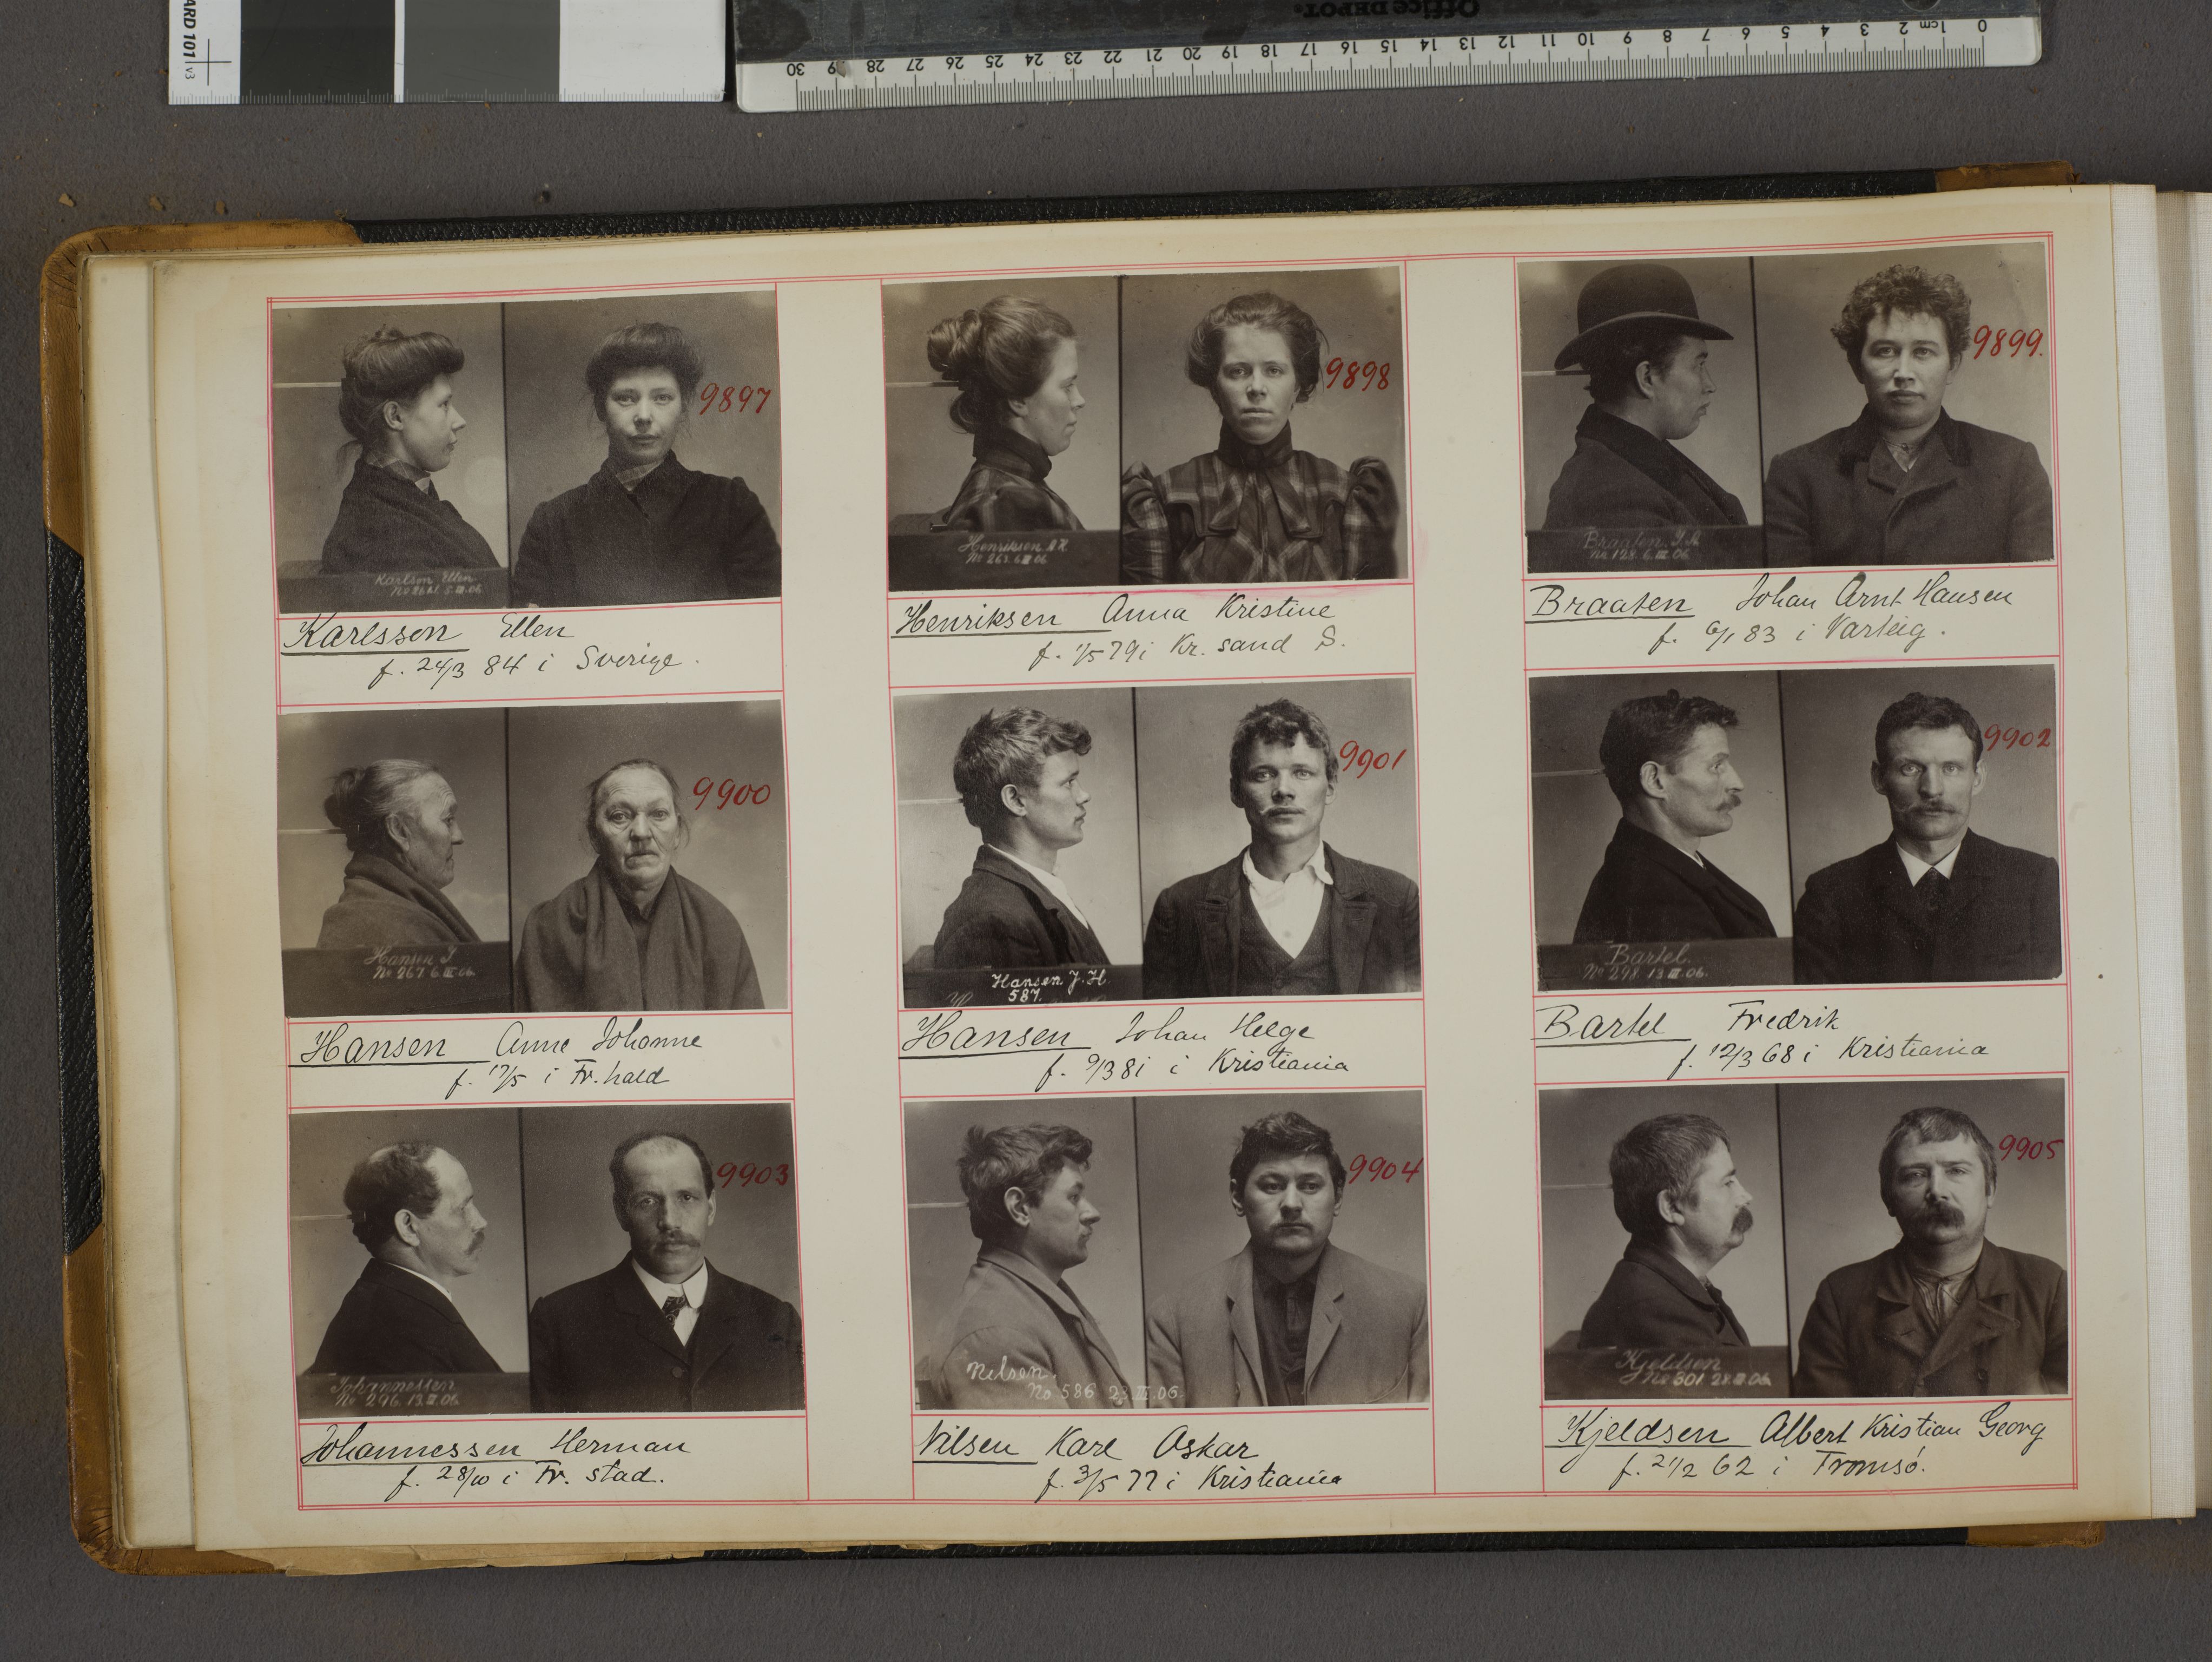 ARD 101 v3
Office DEPOT
0 1cm 2 3 4 5 6 7 8 9 10 11 12 13 14 15 16 17 18 19 20 21 22 23 24 25 26 27 28 29 30
9897
Karlson Ellen
5.III.06
Karlsson Ellen
f. 24/3 84 i Sverige.
9898
Henriksen A K
No 263 6 III 06
Henriksen Anna Kristine
f. 1/5 79 i Kr. sand S.
9899.
Braaten, J.A.
Nr 128. 6.III.06.
Braaten Johan Arnt Hansen
f. 6/1 83 i Varteig.
9900
Hansen J
No 267. 6.III.06.
Hansen Anne Johanne
f. 17/5 i Fr. hald
9901
Hansen J. H.
587.
Hansen Johan Helge
f. 9/3 81 i Kristiania
9902
Bartel.
No 298. 13 III.06.
Bartel Fredrik
f. 12/3 68 i Kristiania
9903
Johannessen
No 296. 13.III.06.
Johannessen Herman
f. 28/10 i Fr. stad.
9904
Nilsen.
No 586 23.III.06.
Nilsen Karl Oskar
f. 3/5 77 i Kristiania
9905
Kjeldsen
No 601 28.III.06
Kjeldsen Albert Kristian Georg
f. 21/2 62 i Tromsö.